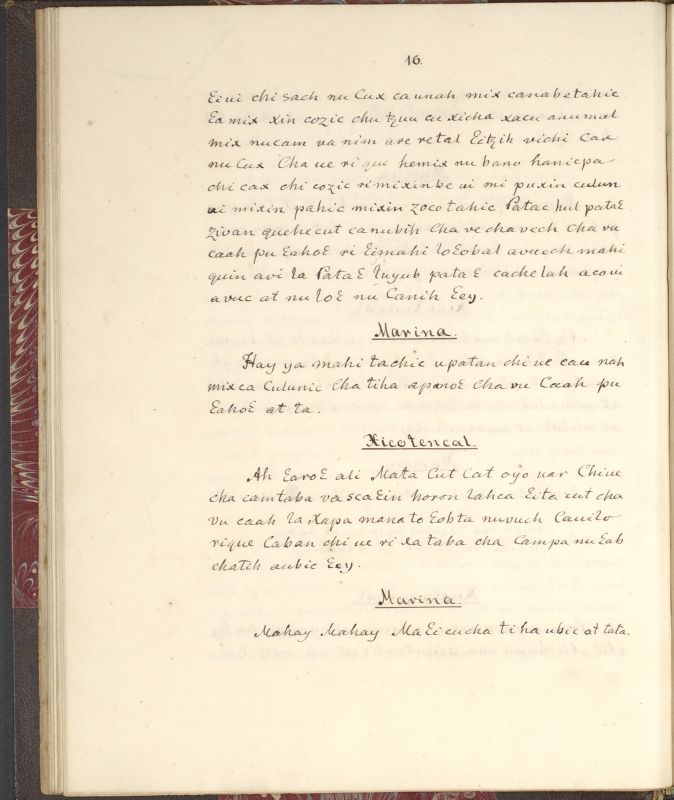 16.
Eiui chi sach nu Cux ca unah mix canabetahic
Ea mix xin cozic chu tzuu cu xicha xacu anumal
mix nucam va nim are retal Eitzih vichi Cax
nu Cux Cha ue ri que hemix nu bano haniepa
chi cax chi cozic rimixinbe ui mi puxin culun
ui mixin pahic mixin zocotahic Patac hul pataE
zivan quehecut canubih Cha ve cha vech cha vu
caah pu EahoE ri Eimahi loEobal avuech mahi
quin avi la PataE luyub pataE cachelah acoui
avuc at nu loE nu Canih Eey.
Marina.
Hay ya mahi tachic upatan chi ue cau nah
mixca Culunic Cha tiha apanoE cha vu Caah pu
EahoE at ta.
Xicotencal.
Ah EaroE ali Mata Cut Cat oyo uar Chiue
cha camtaba va scaEin horon lahca Eita cut cha
vu caah la Xapa mana to Eohta nuvuch Cauilo
rique Caban chi ue ri lataba cha Campa nu Eab
chatih aubic Eey.
Marina.
Mahay Mahay Ma Eicucha tiha ubic at tata.